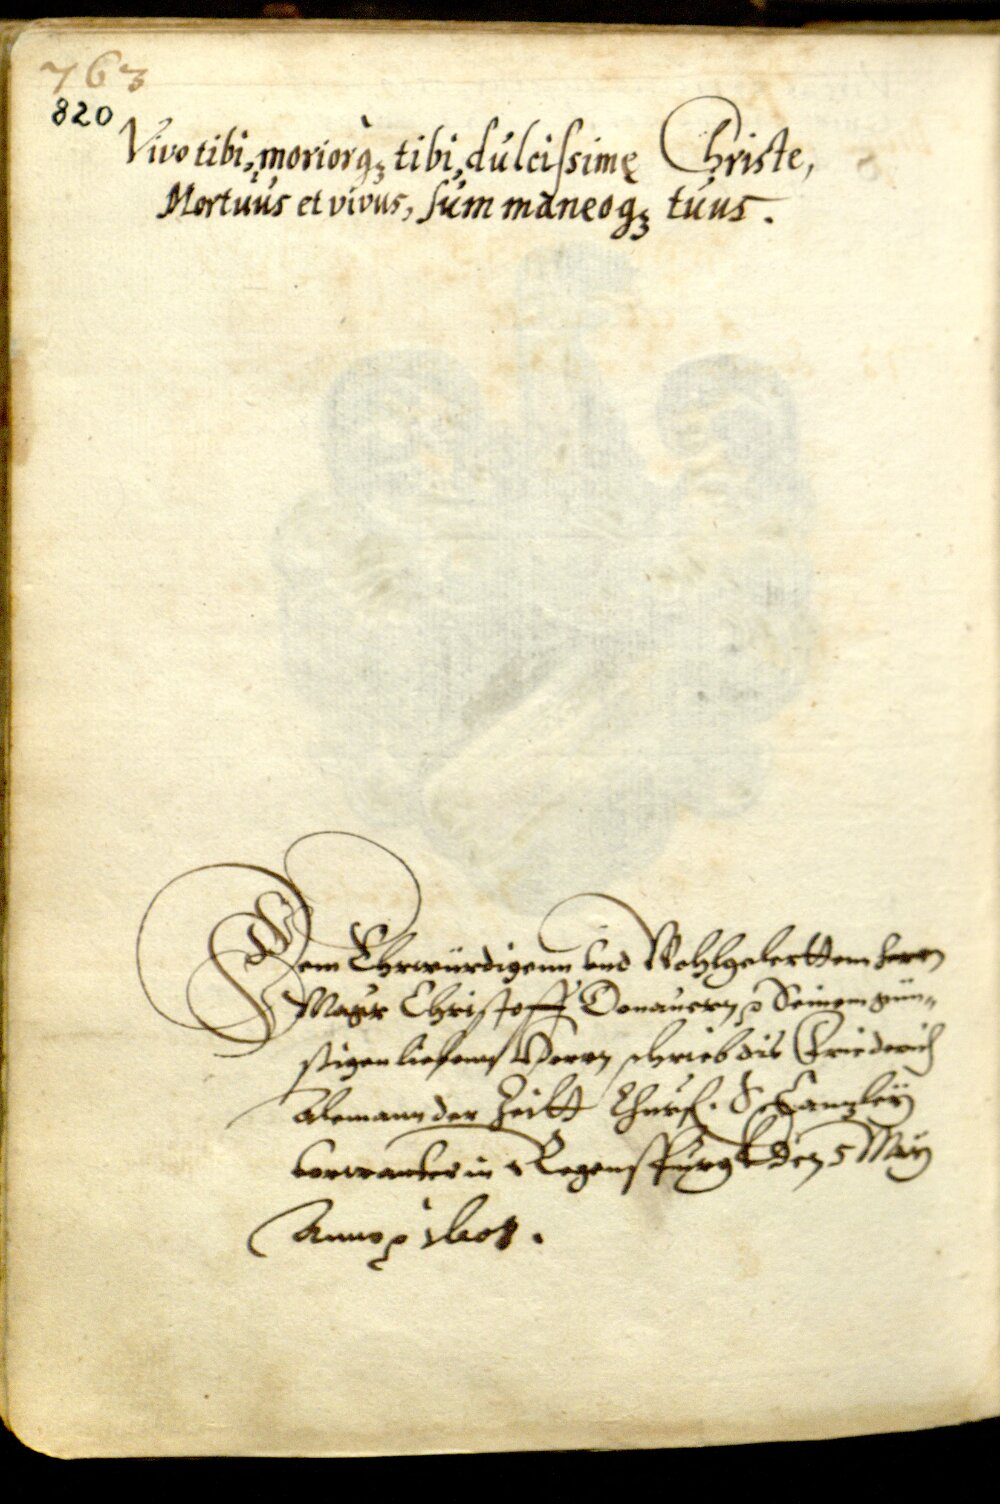 763
820
Vivo tibi, moriorq₃ tibi, dulcissimę Christe,
Mortuus et vivus, sum maneoq₃ tuus.
Dem Ehrwürdigenn vnd Wohlgelerttem herrn
Magr Christoff Donauern, Seinem gün-
stigen liebenn Herrn schrieb dis Friederich
Alemann der Zeitt Churf. S. Cantzley
verwanter in Regenspurgk den 5 May
Anno